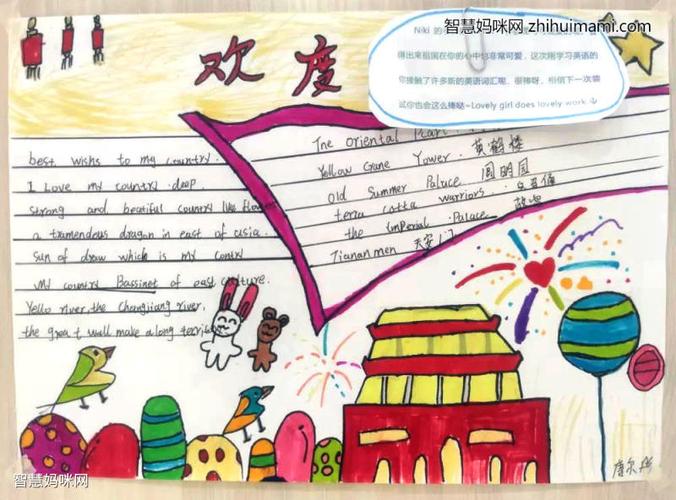 智慧妈咪网 zhihuimami.com
欢度
Niki 的
得出来祖国在你的心中也非常可爱，这次刚学习英语的
你接触了许多新的英语词汇呢，很棒呀，相信下一次尝
试你也会这么棒哒~Lovely girl does lovely work
best wishs to my country.
I Love my country deep.
strong and beatiful country like flower
a tramendous dragon in east of asia.
sun of draw which is my contry
My country Bassinet of east culture.
Yello river, the Changjiang river,
the great wall make a long territory
The Oriental Pearl
Yellow Crane Tower. 黄鹤楼
Old Summer Palace 圆明园
terra cotta warriors. 兵马俑
the imperial Palace 故宫
Tiananmen 天安门
智慧妈咪网